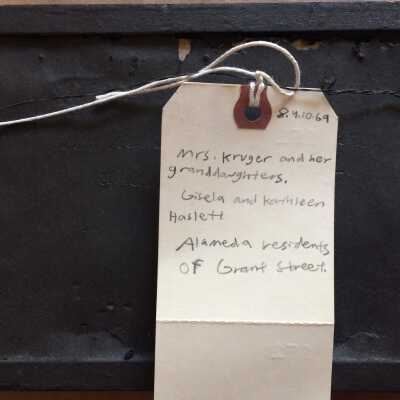 8.9.10.69
Mrs. Kruger and her
granddaughters.
Gisela and Kathleen
Haslett
Alameda residents
of Grant Street.